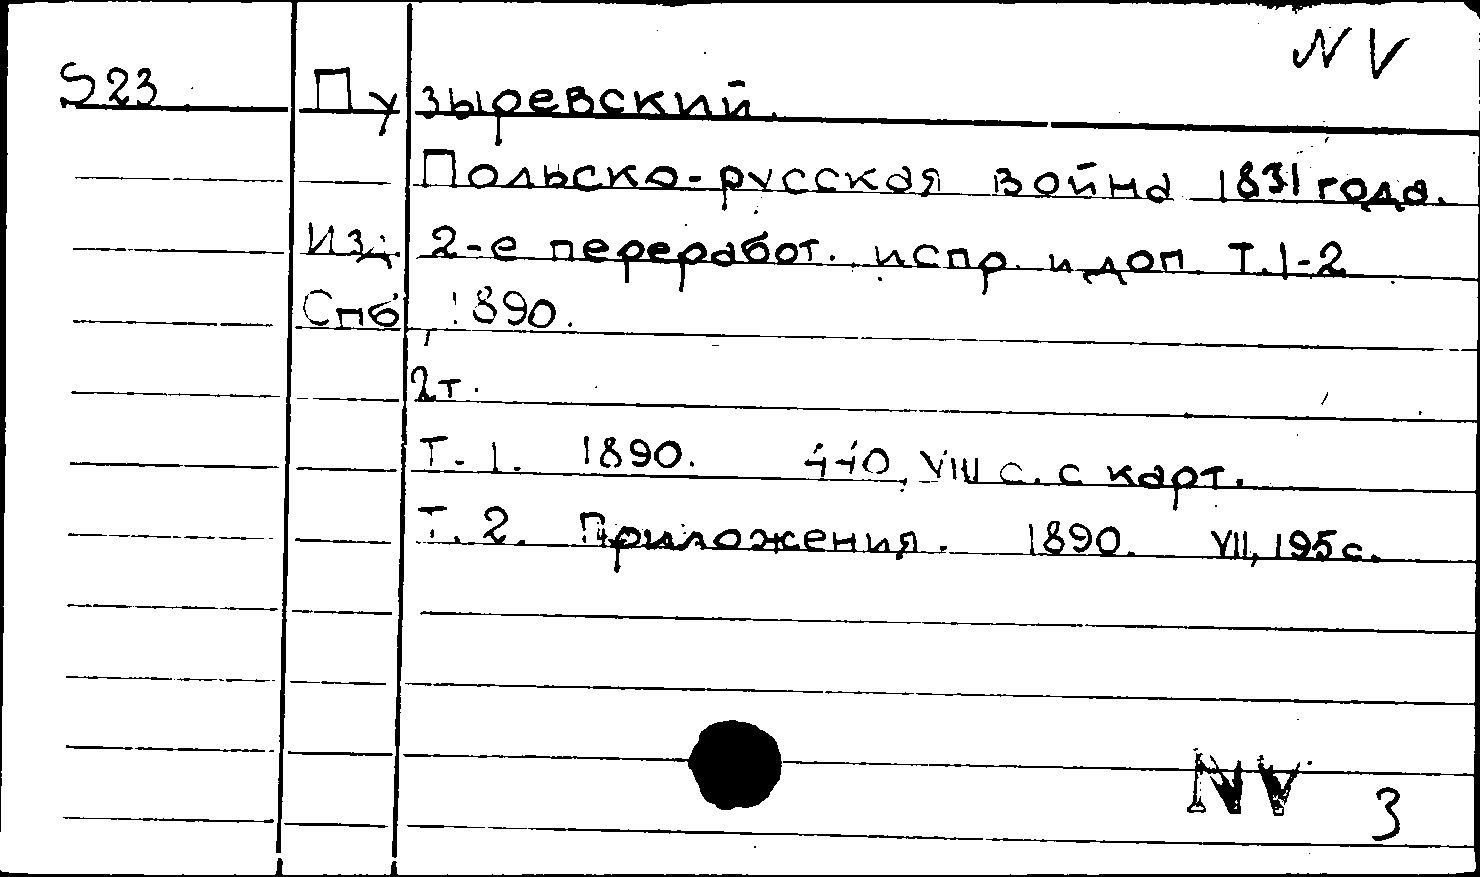 NV
S23 Пузыревский.
Польско-русская война 1831 года.
Изд. 2-е переработ. испр. и доп. Т.1-2
Спб, 1890.
2т.
Т. 1. 1890. 440, VIII с. с карт.
Т. 2. Приложения. 1890. VII, 195 с.
NV 3